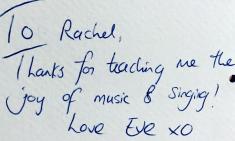 To Rachel,
Thanks for teaching me the
joy of music & singing!
Love Eve xo